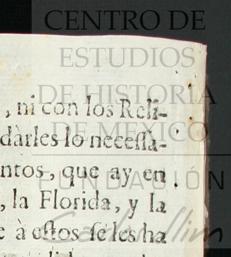 CENTRO DE
ESTUDIOS
DE HISTORIA
DE MEXICO
FUNDACIÓN
Carlos Slim
, ni con los Reli-
dàrles lo necessa-
ntos, que ay en
, la Florida, y la
e à estos se les ha